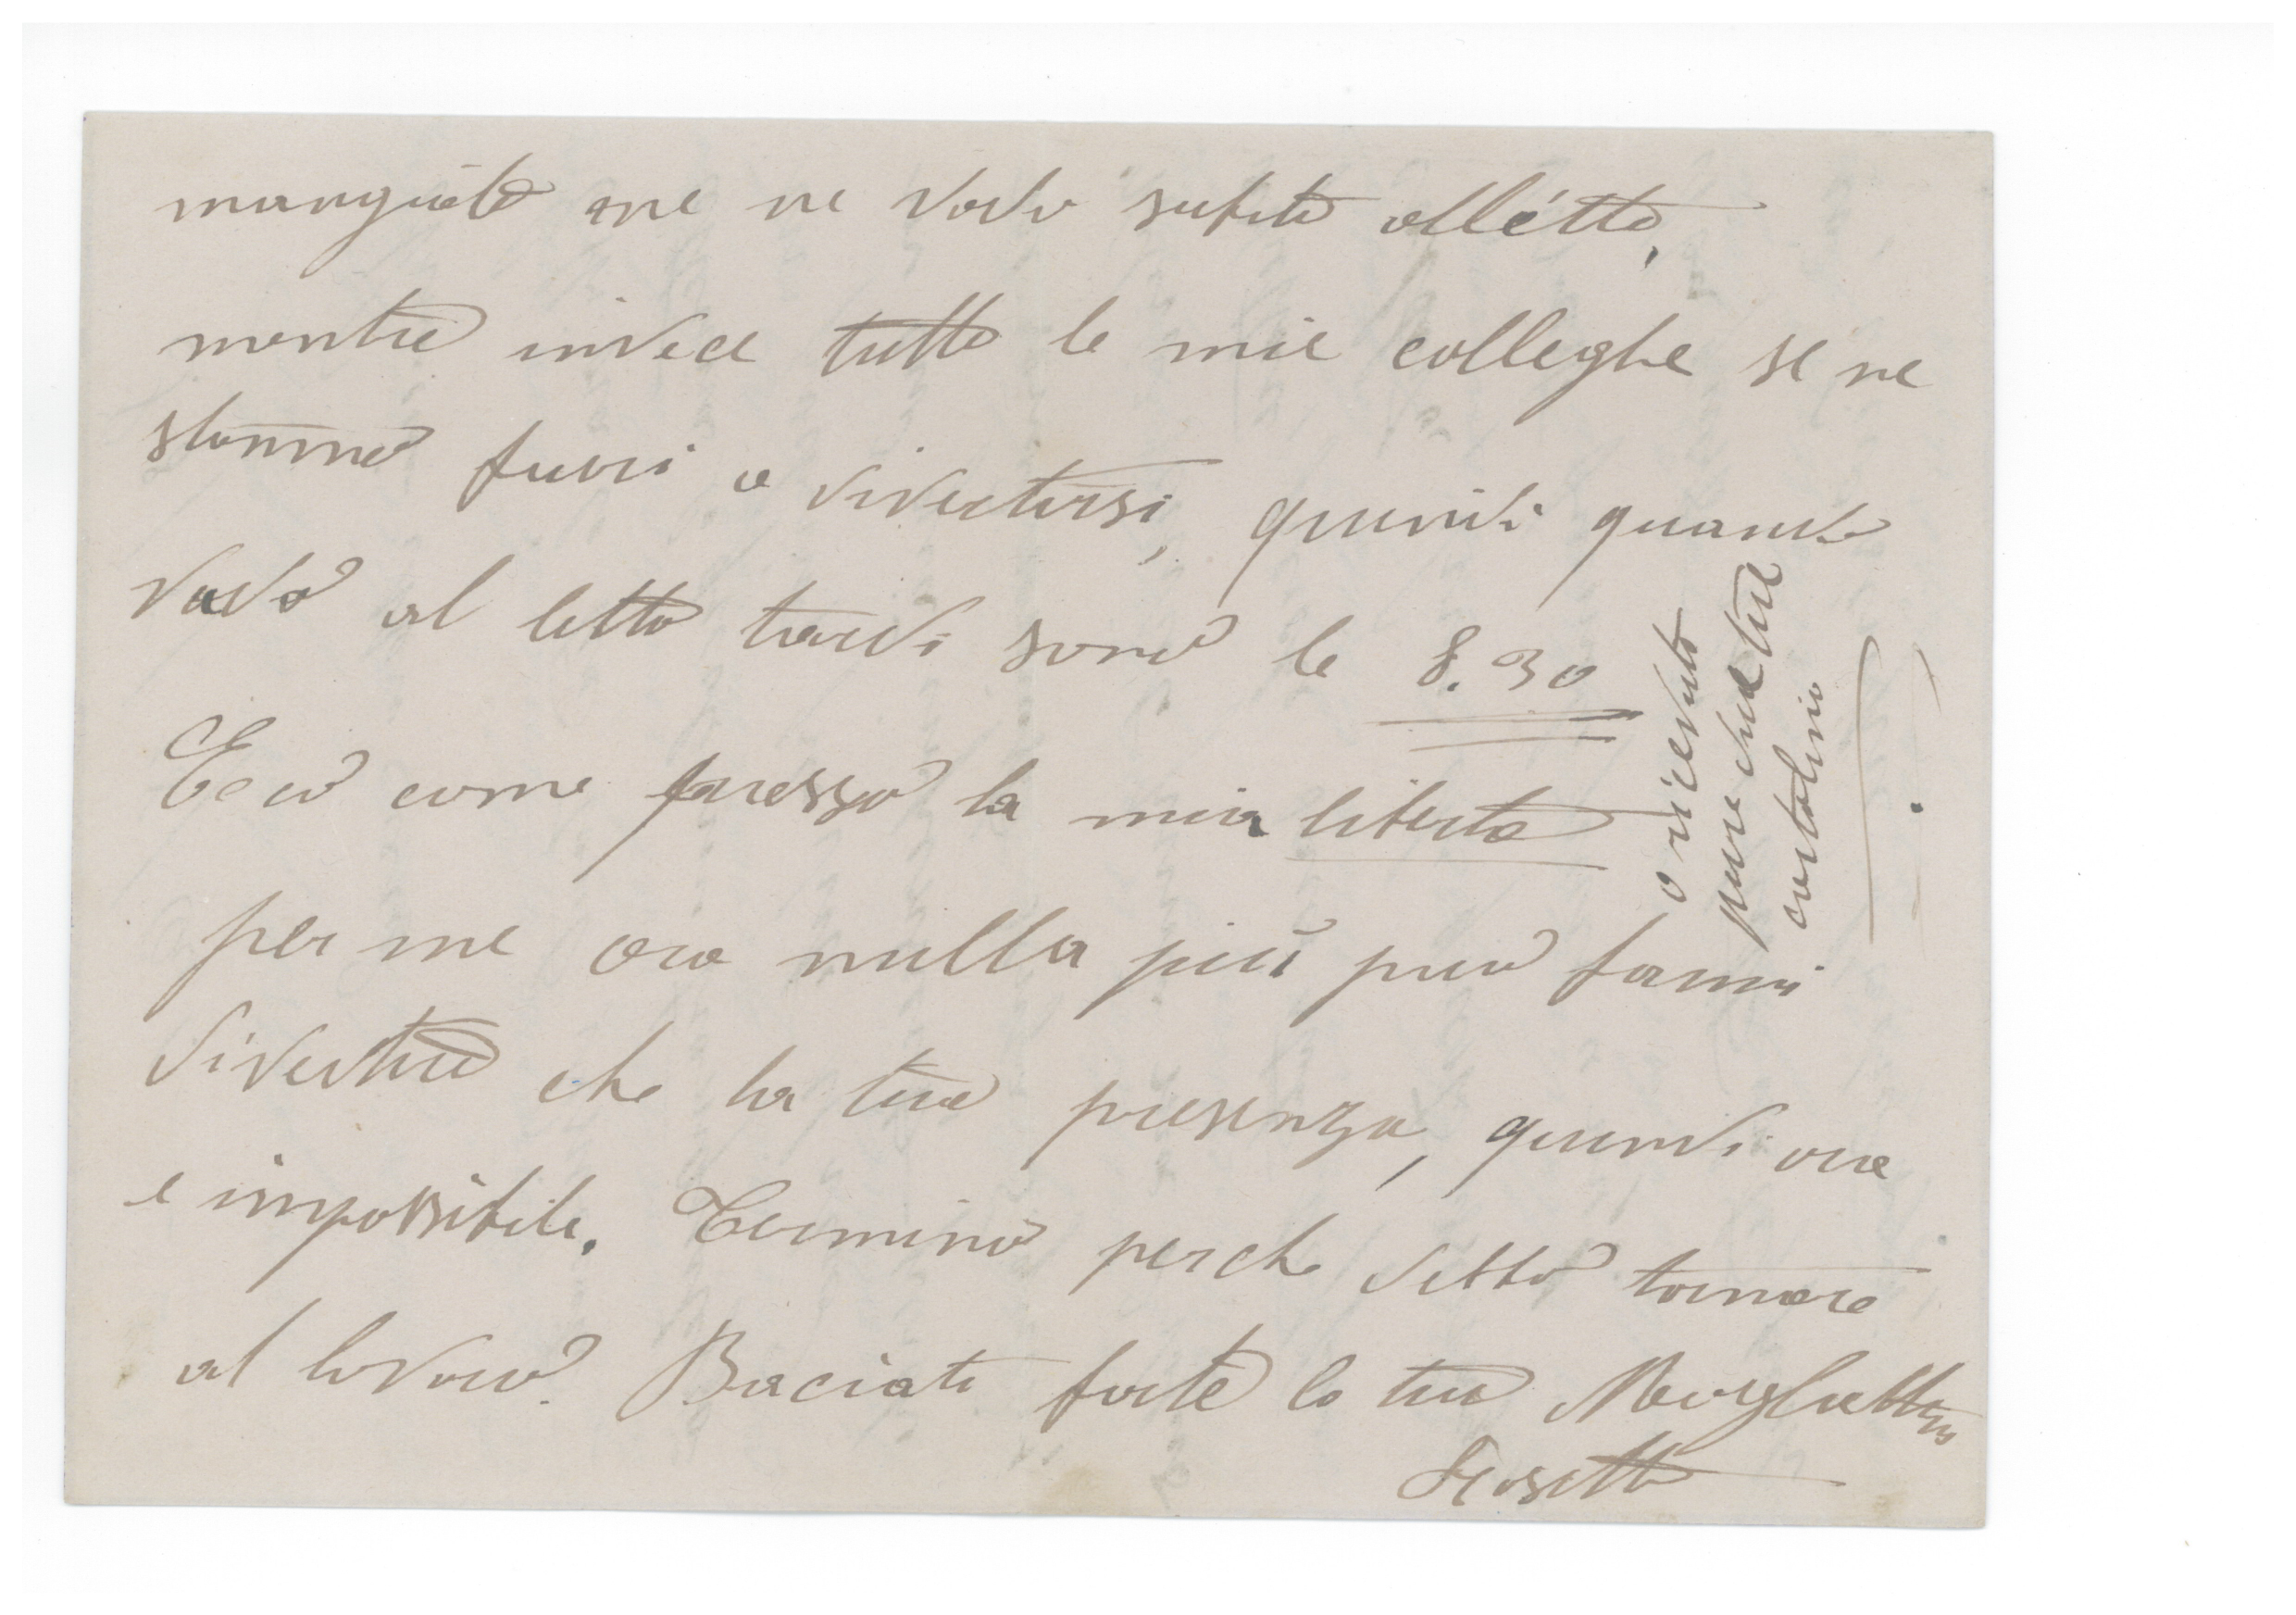 mangiato me ne vado subito allétto,
mentre invece tutte le mie colleghe se ne
stanno fuori a divertirsi, quindi quando
vado al letto tardi sono le 8.30
Ecco come passo la mia liberta
per me ora nulla più può farmi
divertire che la tua presenza, quindi ora
e impossibile. Termino perche debbo tornare
al lavoro. Baciati forte la tua
o ricevuto
pure due tue
cartoline